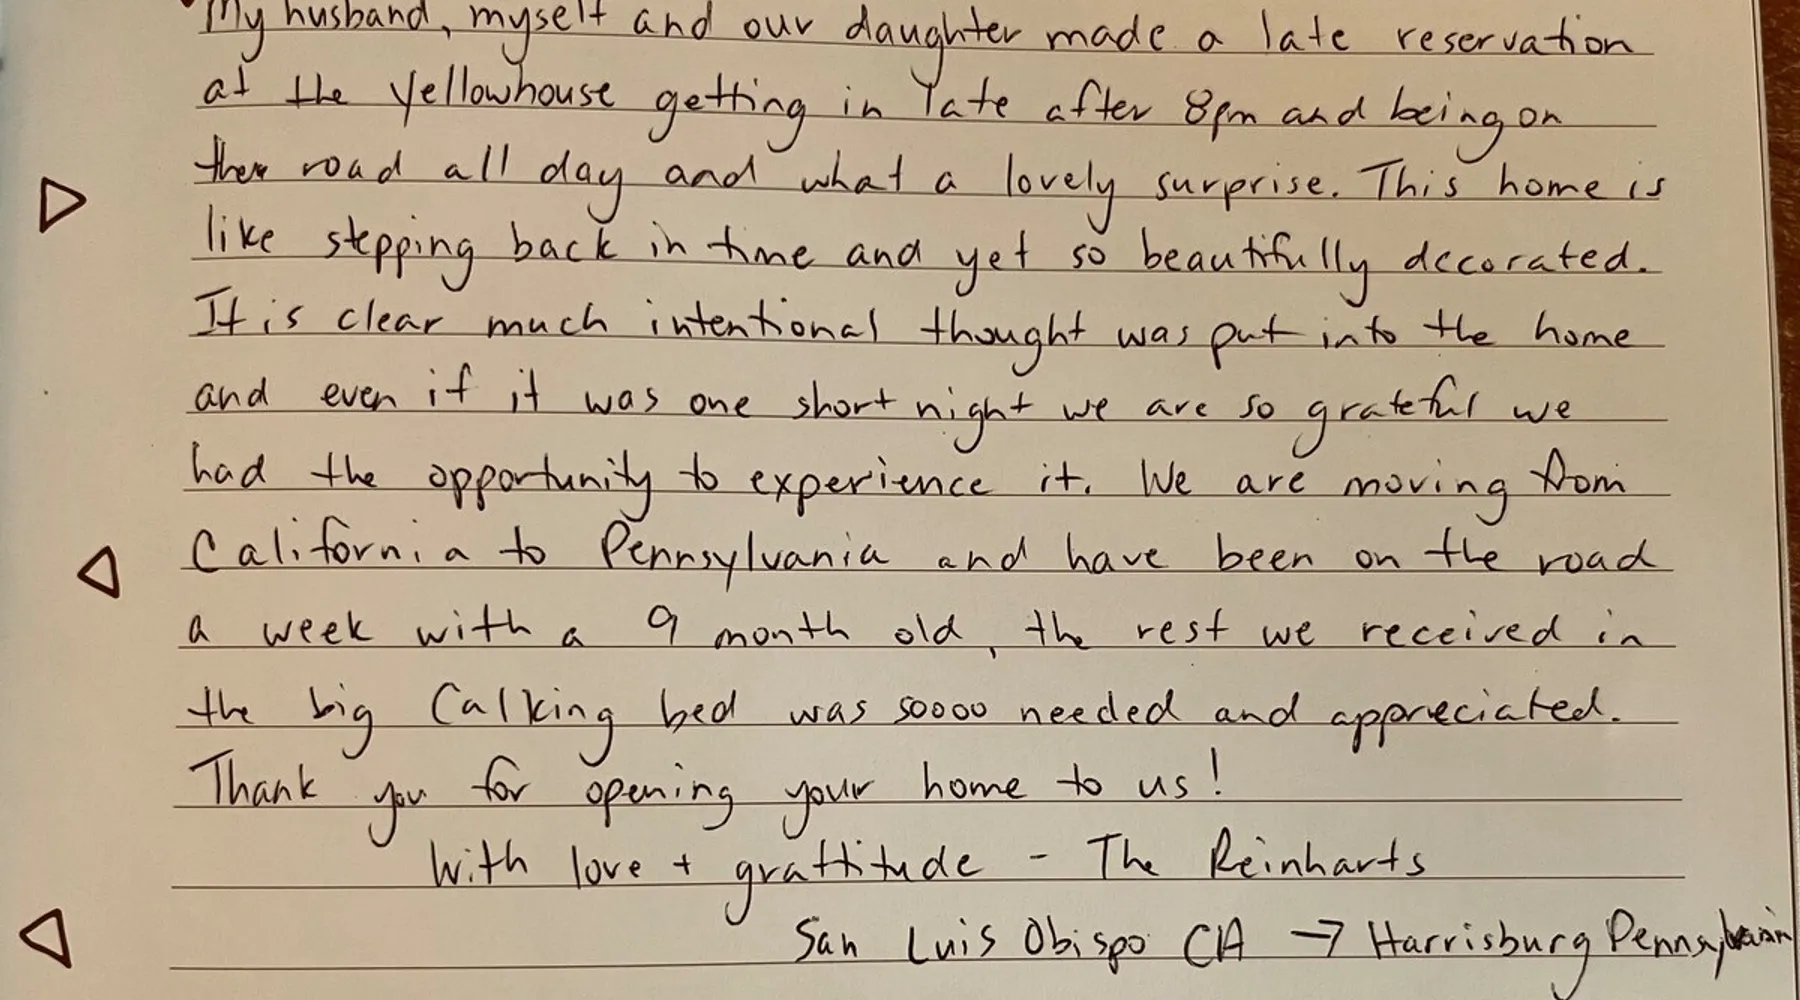 My husband, myself and our daughter made a late reservation
at the Yellowhouse getting in late after 8pm and being on
the road all day and what a lovely surprise. This home is
like stepping back in time and yet so beautifully decorated.
It is clear much intentional thought was put into the home
and even if it was one short night we are so grateful we
had the opportunity to experience it. We are moving from
California to Pennsylvania and have been on the road
a week with a 9 month old, the rest we received in
the big Calking bed was soooo needed and appreciated.
Thank you for opening your home to us!
With love + grattitude - The Reinharts
San Luis Obispo CA → Harrisburg Pennsylvania